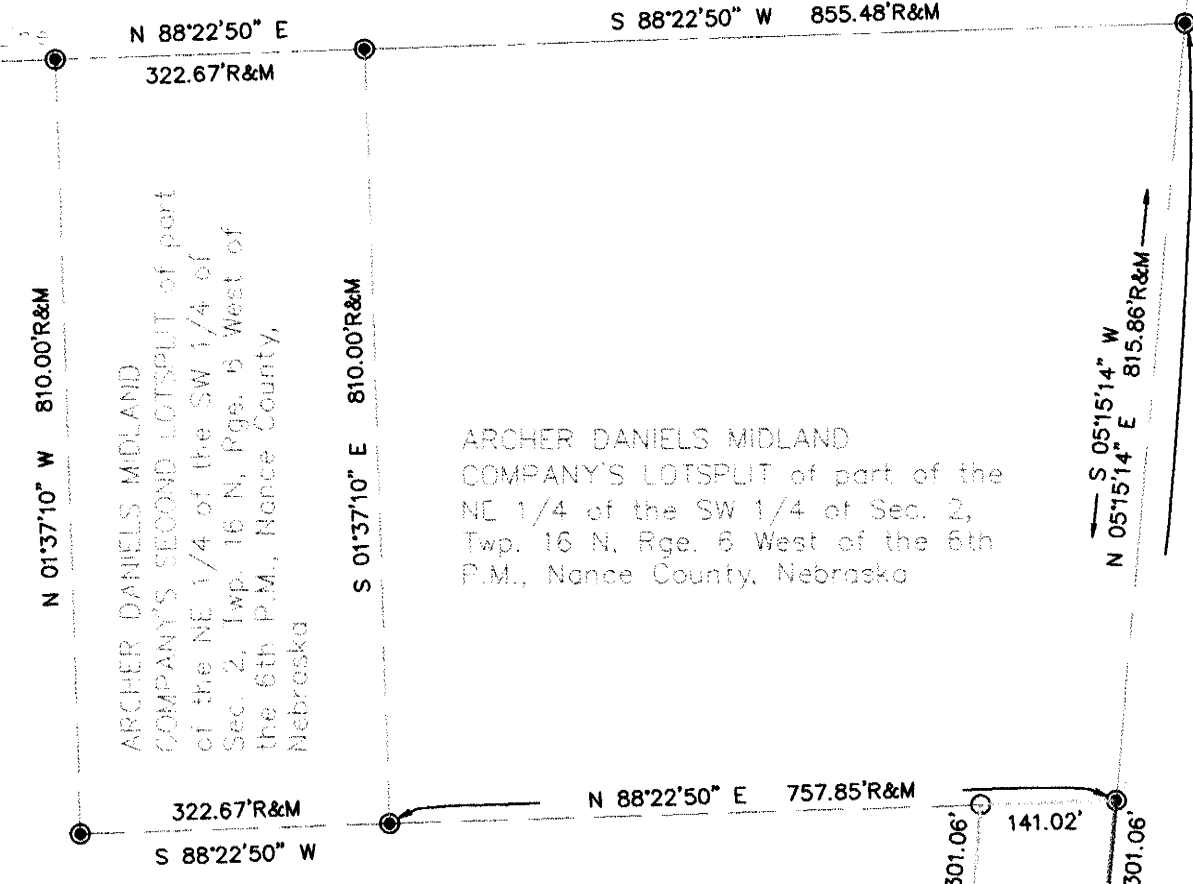 N 88°22'50" E
322.67'R&M
S 88°22'50" W 855.48'R&M
N 01°37'10" W 810.00'R&M
ARCHER DANIELS MIDLAND
COMPANY'S SECOND LOTSPLIT of part
of the NE 1/4 of the SW 1/4 of
Sec. 2, Twp. 16 N, Rge. 6 West of
the 6th P.M., Nance County,
Nebraska
S 01°37'10" E 810.00'R&M
ARCHER DANIELS MIDLAND
COMPANY'S LOTSPLIT of part of the
NE 1/4 of the SW 1/4 of Sec. 2,
Twp. 16 N, Rge. 6 West of the 6th
P.M., Nance County, Nebraska
S 05°15'14" W
N 05°15'14" E 815.86'R&M
322.67'R&M
S 88°22'50" W
N 88°22'50" E 757.85'R&M
141.02'
301.06'
301.06'